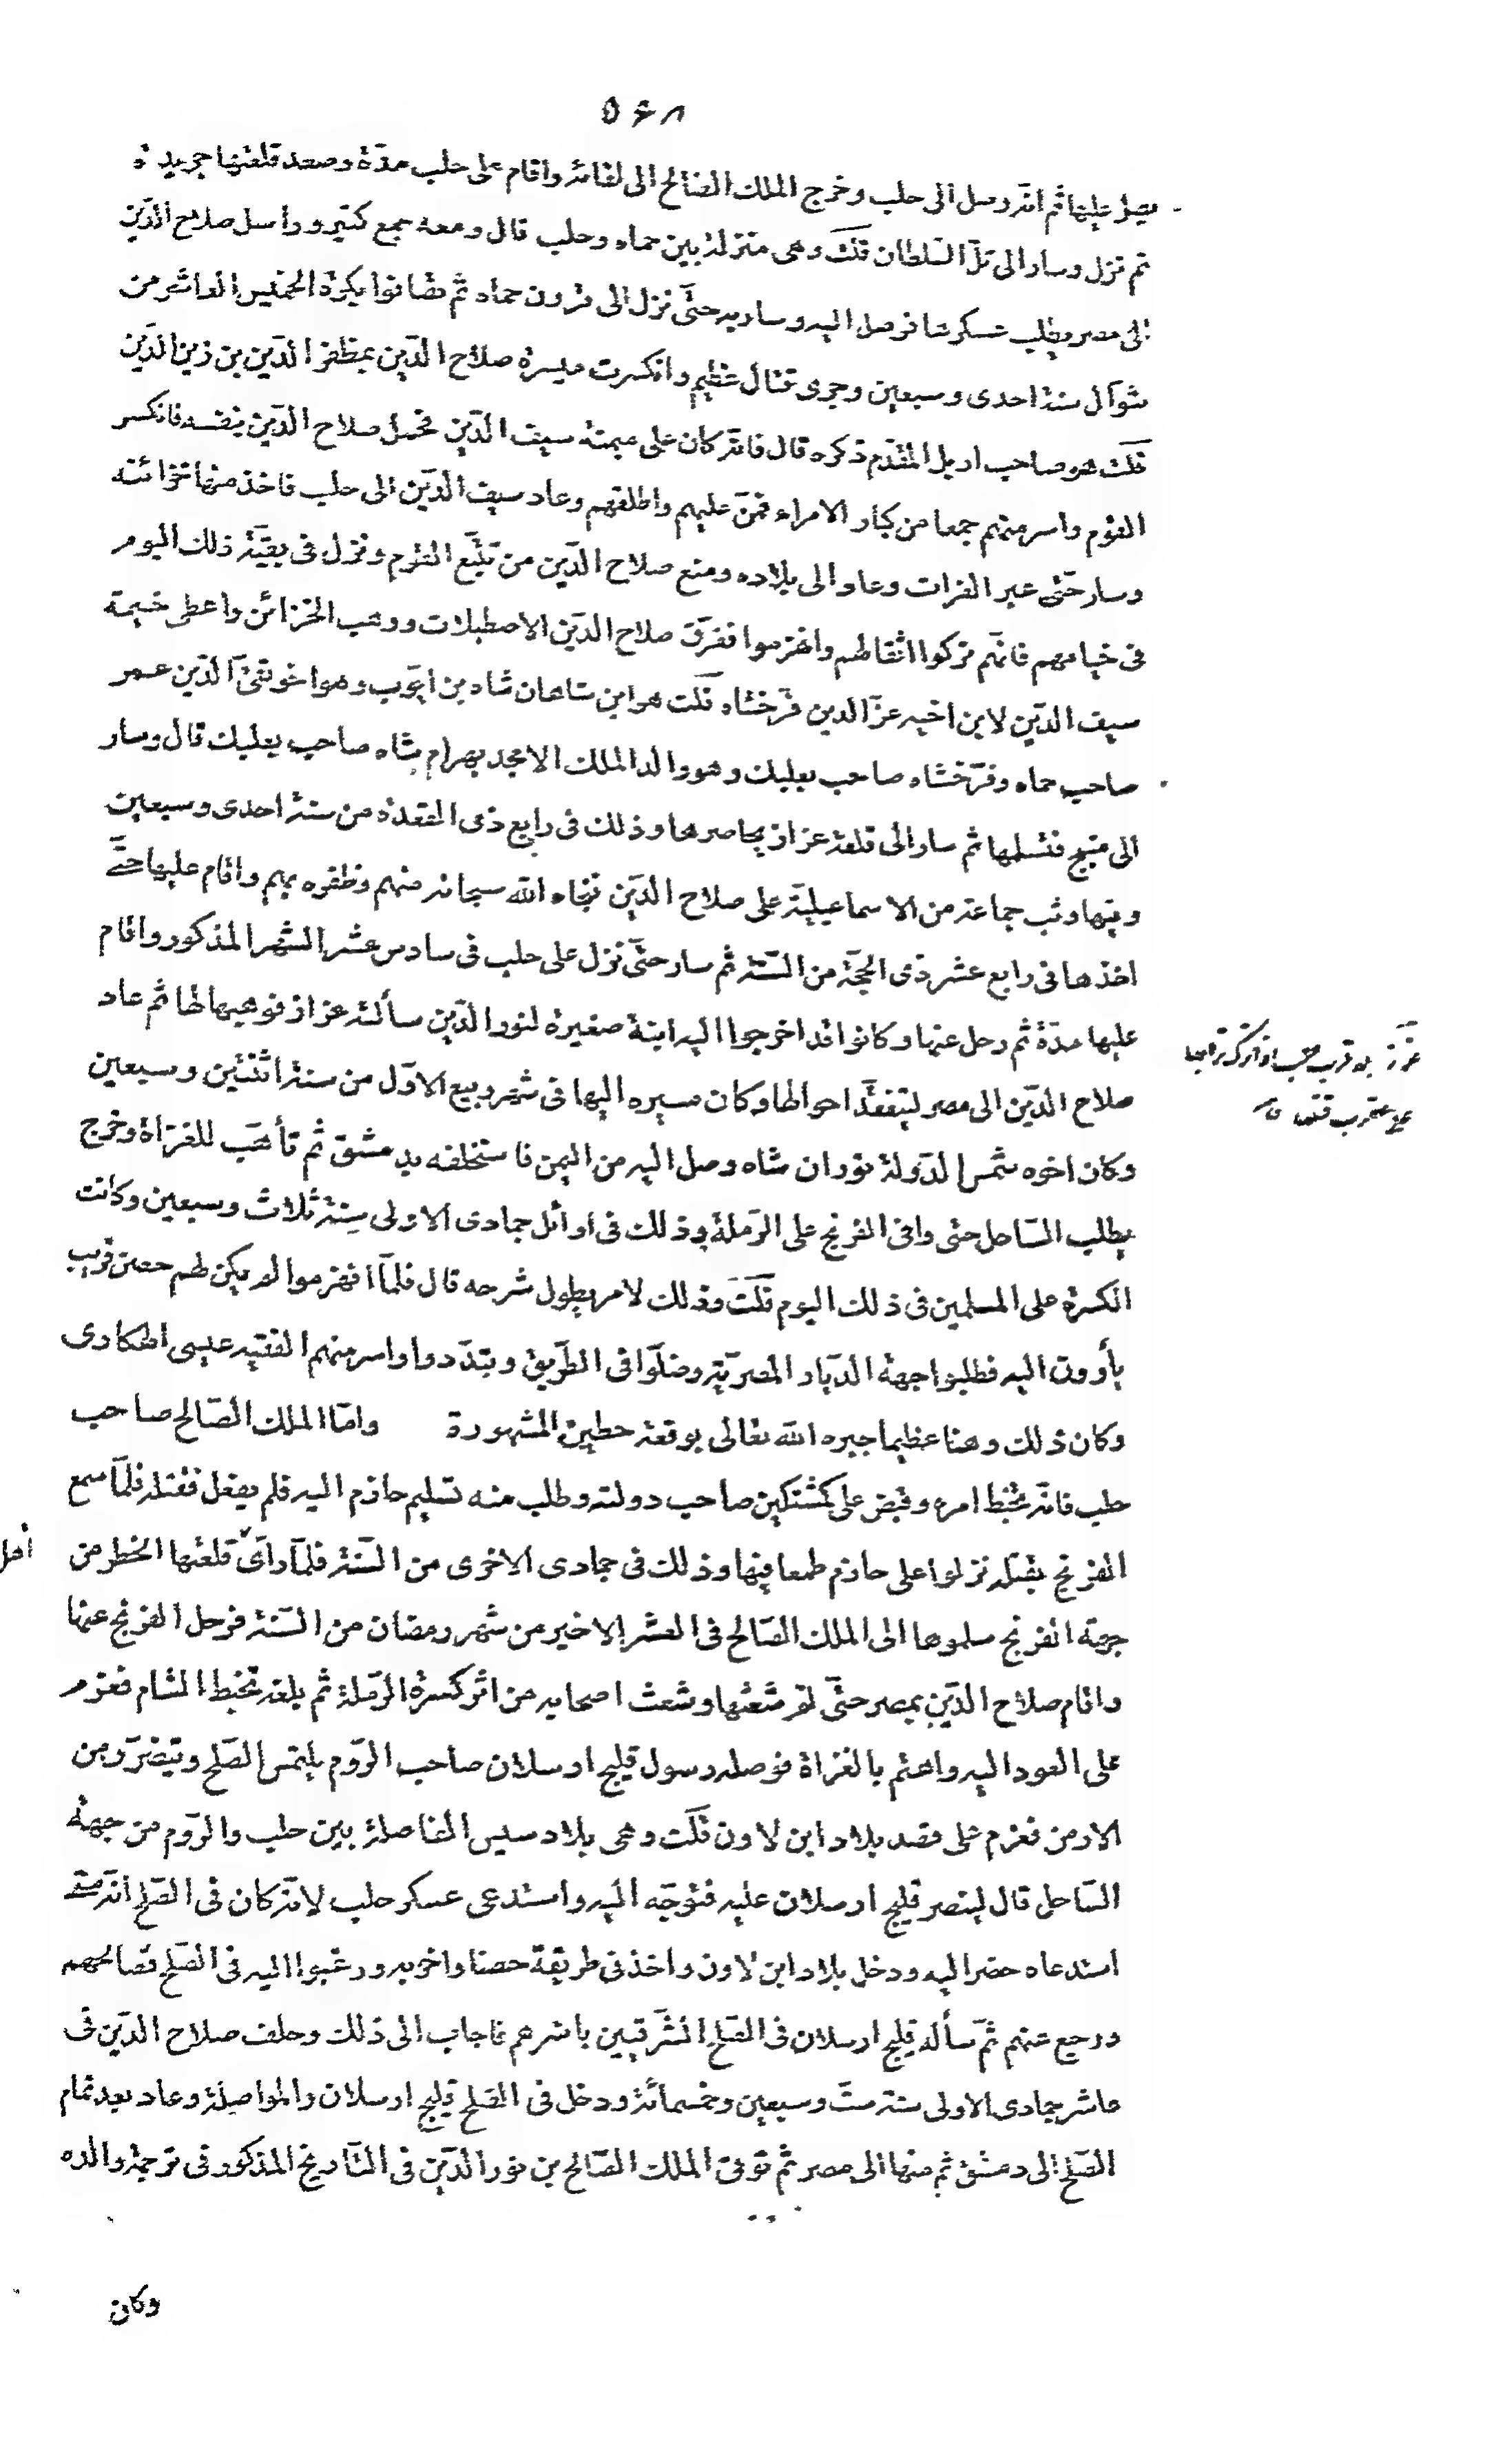 ٥٤٨
يصل عليها ثم انه وصل الى حلب وخرج الملك الصالح الى لقائه واقام على حلب مدّة وصعد قلعتها جريدة
ثم نزل وسار الى تلّ السلطان قلت وهى منزلة بين حماه وحلب قال ومعه جمع كثير وراسل صلاح الدّين
الى مصر وطلب عسكرها فوصل اليه وسار به حتّى نزل الى قرون حماه ثم تصافوا بكرة الخميس العاشر من
شوّال سنة احدى وسبعين وجرى قتال عظيم وانكسرت ميسرة صلاح الدّين بمظفر الدّين بن زين الدّين
قلت هو صاحب اربل المقدّم ذكره قال فانه كان على ميمنة سيف الدّين فحمل صلاح الدّين بنفسه فانكسر
القوم واسر منهم جمعا من كبار الامراء فمنّ عليهم واطلقهم وعاد سيف الدّين الى حلب فاخذ منها خزائنه
وسار حتّى عبر الفرات وعاد الى بلاده ومنع صلاح الدّين من تتبّع القوم ونزل فى بقيّة ذلك اليوم
فى خيامهم فانهم تركوا اثقالهم وانهزموا ففرّق صلاح الدّين الاصطبلات ووهب الخزائن واعطى خيمة
سيف الدّين لابن اخيه عزّ الدين فرّخشاه قلت هو ابن شاهان شاه بن ايّوب وهو اخو تقىّ الدّين عمر
صاحب حماه وفرّخشاه صاحب بعلبك وهو والد الملك الامجد بهرام شاه صاحب بعلبك قال وسار
الى منبج فتسلمها ثم سار الى قلعة عزاز يحاصرها وذلك فى رابع ذى القعدة من سنة احدى وسبعين
وفيها وثب جماعة من الاسماعيليّة على صلاح الدّين فنجاه الله سبحانه منهم وظفره بهم واقام عليها حتّى
اخذها فى رابع عشر ذى الحجّة من السّنة ثم سار حتّى نزل على حلب فى سادس عشر الشهر المذكور واقام
عليها مدّة ثم رحل عنها وكانوا قد اخرجوا اليه ابنة صغيرة لنور الدّين سألته عزاز فوهبها لها ثم عاد
صلاح الدّين الى مصر ليتفقّد احوالها وكان مسيره اليها فى شهر ربيع الاوّل من سنة اثنتين وسبعين
وكان اخوه شمس الدّولة توران شاه وصل اليه من اليمن فاستخلفه بدمشق ثم تأهّب للغزاة وخرج
يطلب السّاحل حتى وافى الفرنج على الرّملة وذلك فى اوائل جمادى الاولى سنة ثلاث وسبعين وكانت
الكسرة على المسلمين فى ذلك اليوم قلت وذلك لامر يطول شرحه قال فلمّا انهزموا لم يكن لهم حصن قريب
يأوون اليه فطلبوا جهة الدّيار المصريّة وضلّوا فى الطّريق وتبدّدوا واسر منهم الفقيه عيسى الهكارى
وكان ذلك وهنا عظيما جبره الله تعالى بوقعة حطين المشهورة وامّا الملك الصّالح صاحب
حلب فانّه تخبّط امره وقبض على كمشتكين صاحب دولته وطلب منه تسليم حارم اليه فلم يفعل فقتله فلمّا سمع
الفرنج بقتله نزلوا على حارم طمعا فيها وذلك فى جمادى الاخرى من السّنة فلمّا رأى قلعتها الخطر من
اهل
جهة الفرنج سلموها الى الملك الصّالح فى العشر الاخير من شهر رمضان من السّنة فرحل الفرنج عنها
واقام صلاح الدّين بمصر حتّى لمّ شعثها وشعث اصحابه من اثر كسرة الرّملة ثم بلغه تخبّط الشام فعزم
على العود اليه واهتم بالغزاة فوصله رسول قليج ارسلان صاحب الرّوم يلتمس الصّلح ويتضرّر من
الارمن فعزم على قصد بلاد ابن لاون قلت وهى بلاد سيس الفاصلة بين حلب والرّوم من جهة
السّاحل قال لينصر قليج ارسلان عليه فتوجّه اليه واستدعى عسكر حلب لانّه كان فى الصّلح انه متى
استدعاه حضر اليه ودخل بلاد ابن لاون واخذ فى طريقه حصنا واخربه ورغبوا اليه فى الصّلح فصالحهم
ورجع عنهم ثمّ سأله قليج ارسلان فى الصّلح الشّرقيين باسرهم فاجاب الى ذلك وحلف صلاح الدّين فى
عاشر جمادى الاولى سنة ستّ وسبعين وخمسمائة ودخل فى الصّلح قليج ارسلان والمواصلة وعاد بعد تمام
الصّلح الى دمشق ثم منها الى مصر ثم توفى الملك الصّالح بن نور الدّين فى التّاريخ المذكور فى ترجمة والده
وكان